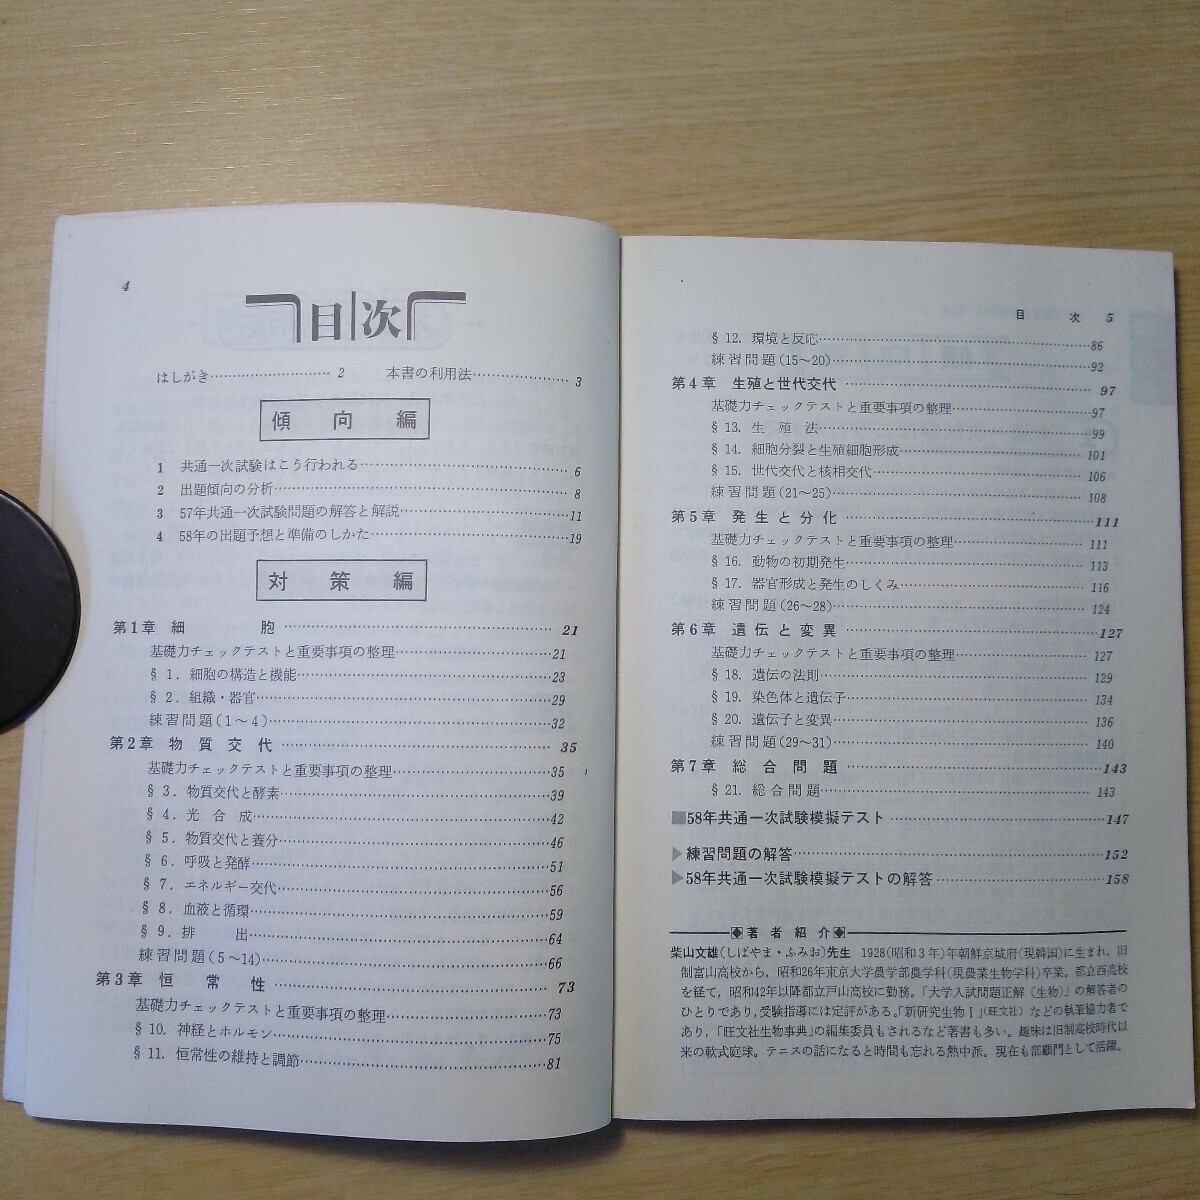 4
目次
はしがき…………………………2　本書の利用法……………………3
傾向編
1 共通一次試験はこう行われる……………………6
2 出題傾向の分析……………………8
3 57年共通一次試験問題の解答と解説……………………11
4 58年の出題予想と準備のしかた……………………19
対策編
第1章 細胞……………………21
基礎力チェックテストと重要事項の整理……………………21
§ 1. 細胞の構造と機能……………………23
§ 2. 組織・器官……………………29
練習問題(1〜4)……………………32
第2章 物質交代……………………35
基礎力チェックテストと重要事項の整理……………………35
§ 3. 物質交代と酵素……………………39
§ 4. 光合成……………………42
§ 5. 物質交代と養分……………………46
§ 6. 呼吸と発酵……………………51
§ 7. エネルギー交代……………………56
§ 8. 血液と循環……………………59
§ 9. 排出……………………64
練習問題(5〜14)……………………66
第3章 恒常性……………………73
基礎力チェックテストと重要事項の整理……………………73
§ 10. 神経とホルモン……………………75
§ 11. 恒常性の維持と調節……………………81
目次 5
§ 12. 環境と反応……………………86
練習問題(15〜20)……………………92
第4章 生殖と世代交代……………………97
基礎力チェックテストと重要事項の整理……………………97
§ 13. 生殖法……………………99
§ 14. 細胞分裂と生殖細胞形成……………………101
§ 15. 世代交代と核相交代……………………106
練習問題(21〜25)……………………108
第5章 発生と分化……………………111
基礎力チェックテストと重要事項の整理……………………111
§ 16. 動物の初期発生……………………113
§ 17. 器官形成と発生のしくみ……………………116
練習問題(26〜28)……………………124
第6章 遺伝と変異……………………127
基礎力チェックテストと重要事項の整理……………………127
§ 18. 遺伝の法則……………………129
§ 19. 染色体と遺伝子……………………134
§ 20. 遺伝子と変異……………………136
練習問題(29〜31)……………………140
第7章 総合問題……………………143
§ 21. 総合問題……………………143
■58年共通一次試験模擬テスト……………………147
▶練習問題の解答……………………152
▶58年共通一次試験模擬テストの解答……………………158
◆著者紹介◆
柴山文雄(しばやま・ふみお)先生 1928(昭和3年)年朝鮮京城府(現韓国)に生まれ，旧
制富山高校から，昭和26年東京大学農学部農学科(現農業生物学科)卒業。都立西高校
を経て，昭和42年以降都立戸山高校に勤務。「大学入試問題正解(生物)」の解答者の
ひとりであり，受験指導には定評がある。「新研究生物Ⅰ」(旺文社)などの執筆協力者で
あり，「旺文社生物事典」の編集委員もされるなど著書も多い。趣味は旧制高校時代以
来の軟式庭球。テニスの話になると時間も忘れる熱中派。現在も部顧問として活躍。